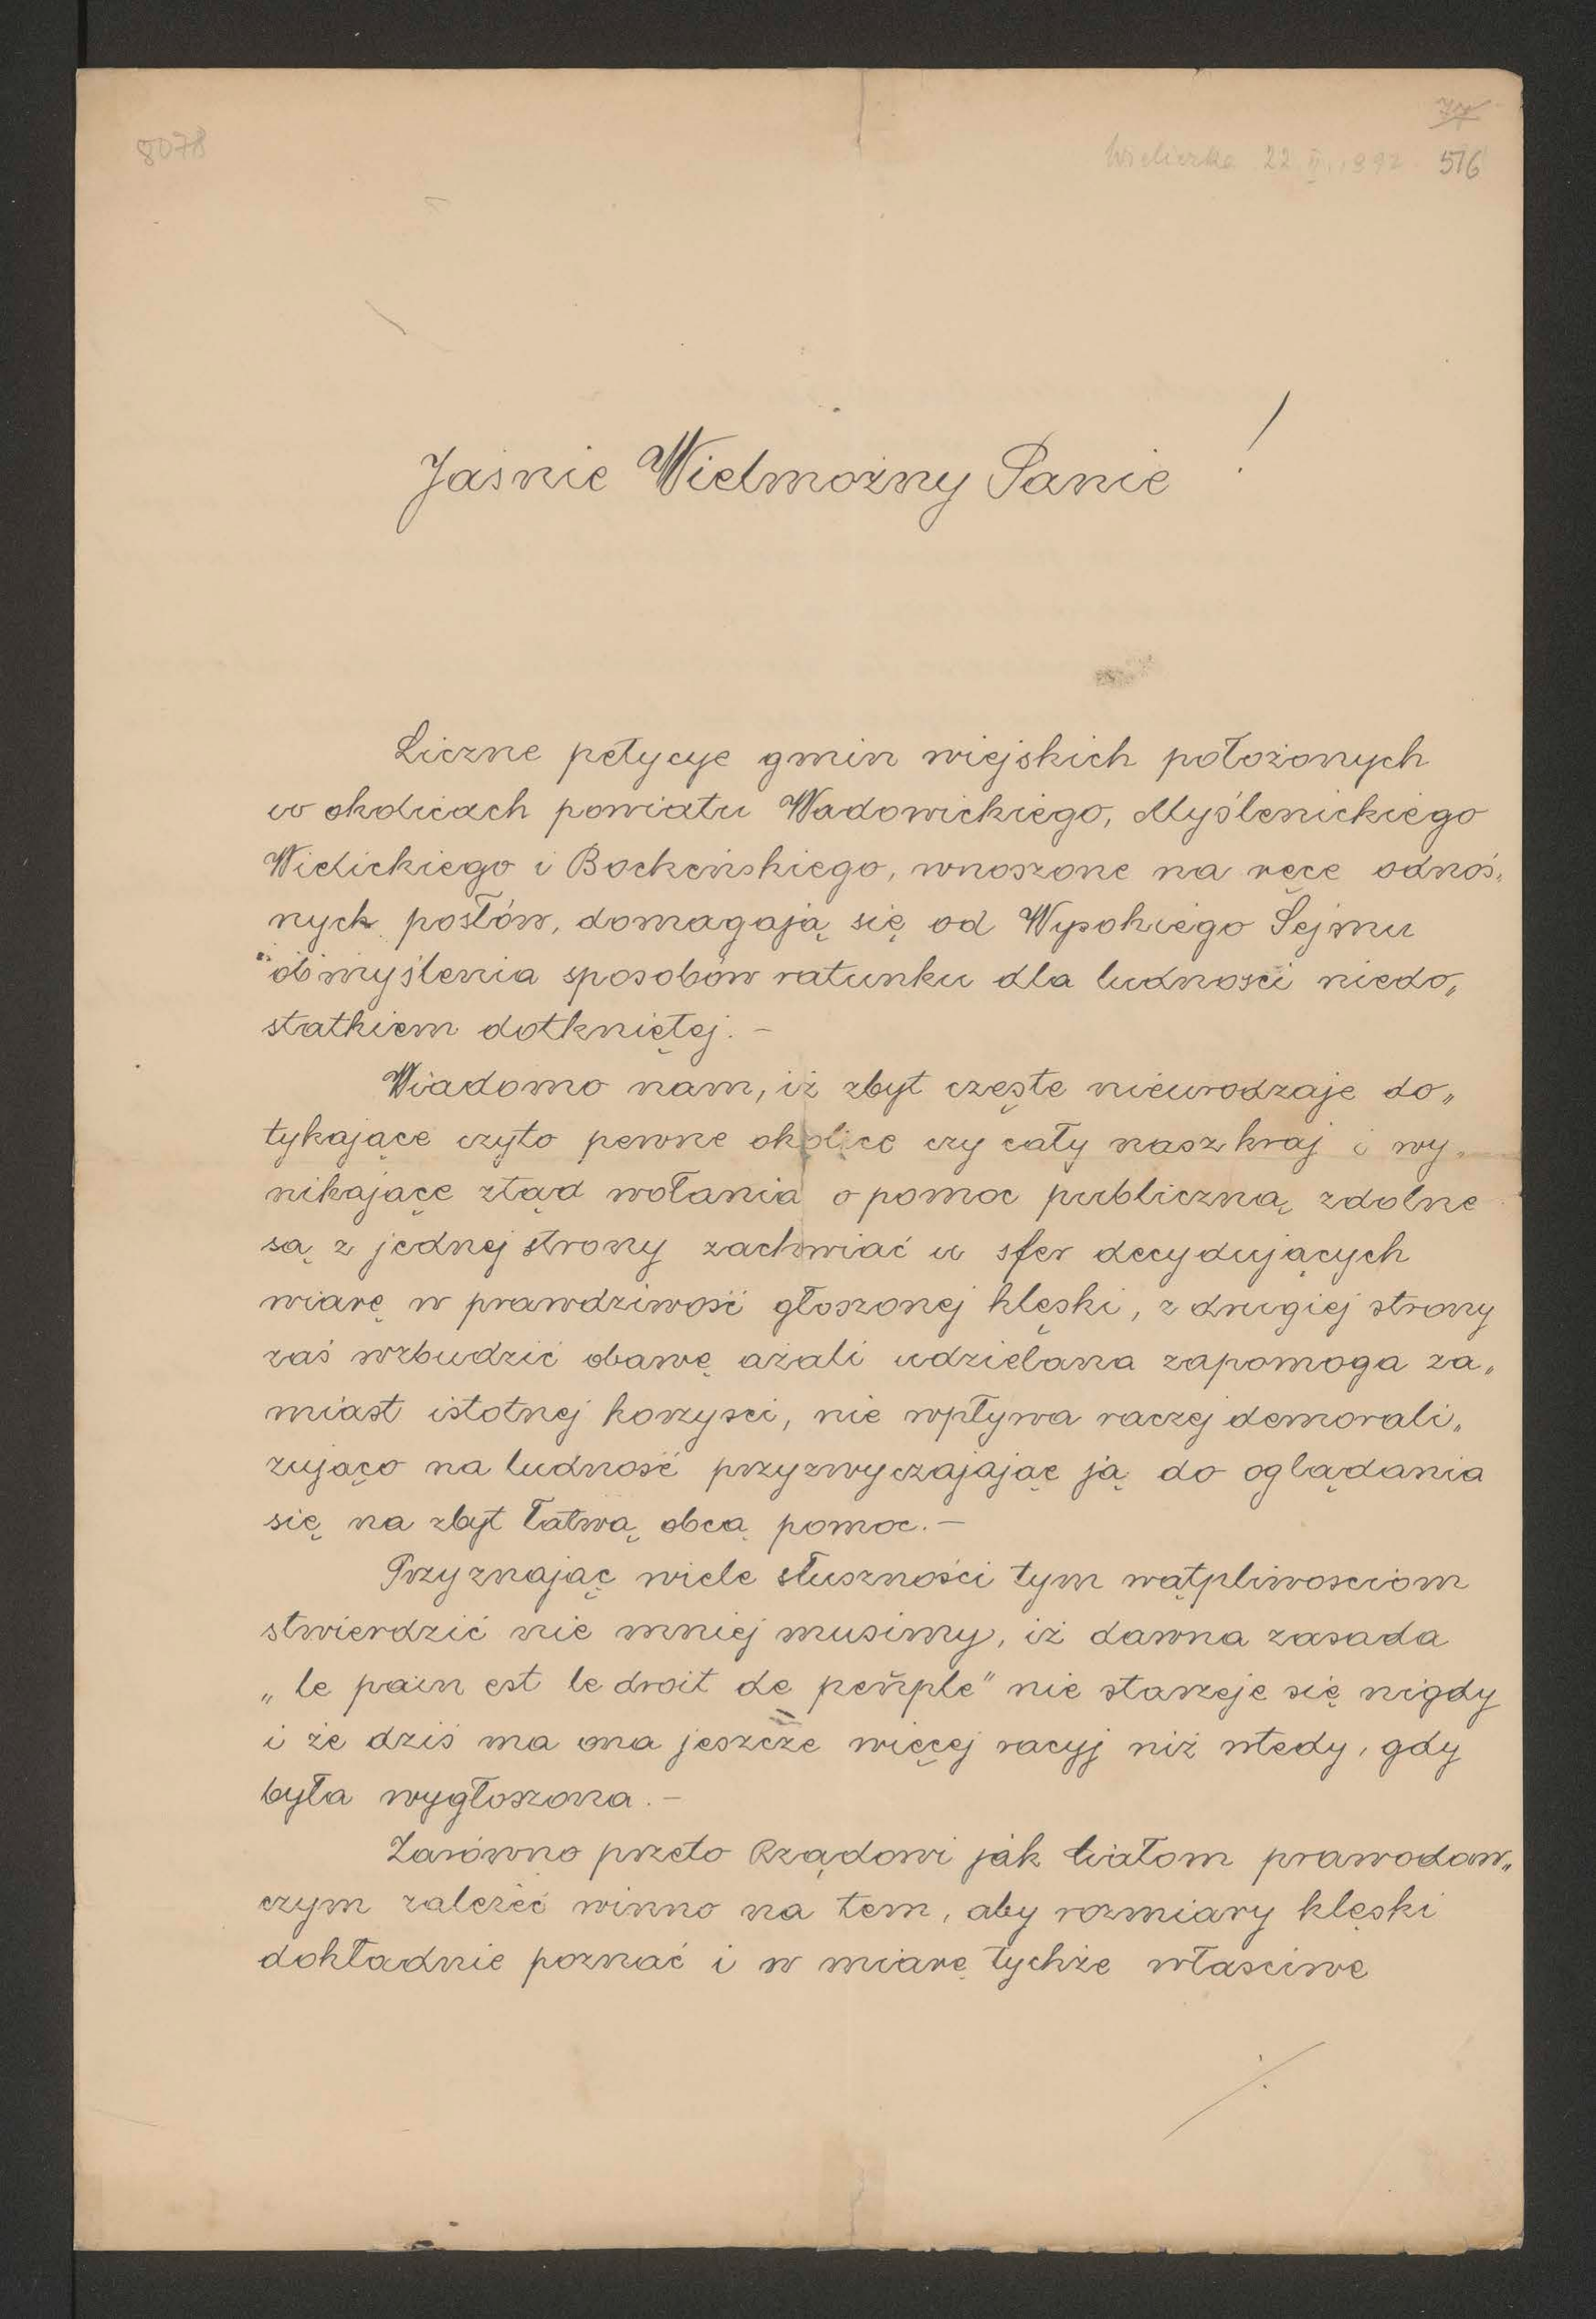 8078
Wieliczka 22 II 1892 516
Jaśnie Wielmożny Panie !
Liczne petycye gmin wiejskich położonych
w okolicach powiatu Wadowickiego, Myślenickiego
Wielickiego i Bocheńskiego, wnoszone na ręce odnoś„
nych posłów, domagają się od Wysokiego Sejmu
obmyślenia sposobów ratunku dla ludności niedo„
statkiem dotkniętej. –
Wiadomo nam, iż zbyt częste nieurodzaje do„
tykające czyto pewne okolice czy cały nasz kraj i wy„
nikające ztąd wołania o pomoc publiczną zdolne
są z jednej strony zachwiać u sfer decydujących
wiarę w prawdziwość głoszonej klęski, z drugiej strony
zaś wzbudzić obawę azali udzielana zapomoga za„
miast istotnej korzysci, nie wpływa raczej demorali„
zująco na ludność przyzwyczajając ją do oglądania
się na zbyt łatwą obcą pomoc. –
Przyznając wiele słuszności tym wątpliwosciom
stwierdzić nie mniej musimy, iż dawna zasada
„le pain est le droit de peuple" nie starzeje się nigdy
i że dziś ma ona jeszcze więcej racyj niż wtedy, gdy
była wygłoszona. –
Zarówno przeto Rządowi jak ciałom prawodaw„
czym zależeć winno na tem, aby rozmiary klęski
dokładnie poznać i w miarę tychże własciwe
./.